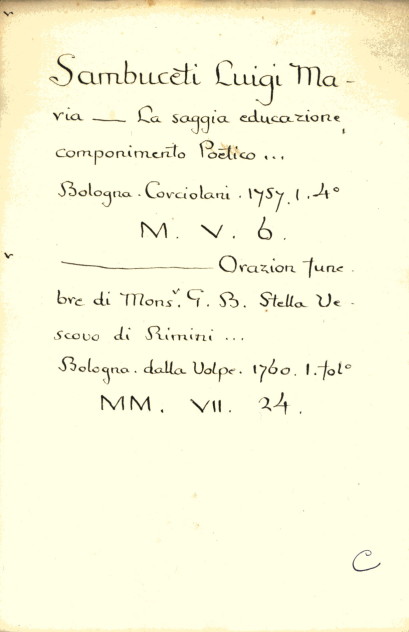 Sambuceti Luigi Ma-
ria — La saggia educazione,
componimento Poetico ...
Bologna. Corciolani. 1757. 1. 4°
M. V. 6.
——— Orazion fune.
bre di Monsr. G. B. Stella Ve-
scovo di Rimini ...
Bologna. dalla Volpe. 1760. 1. fol°
MM. VII. 24.
C